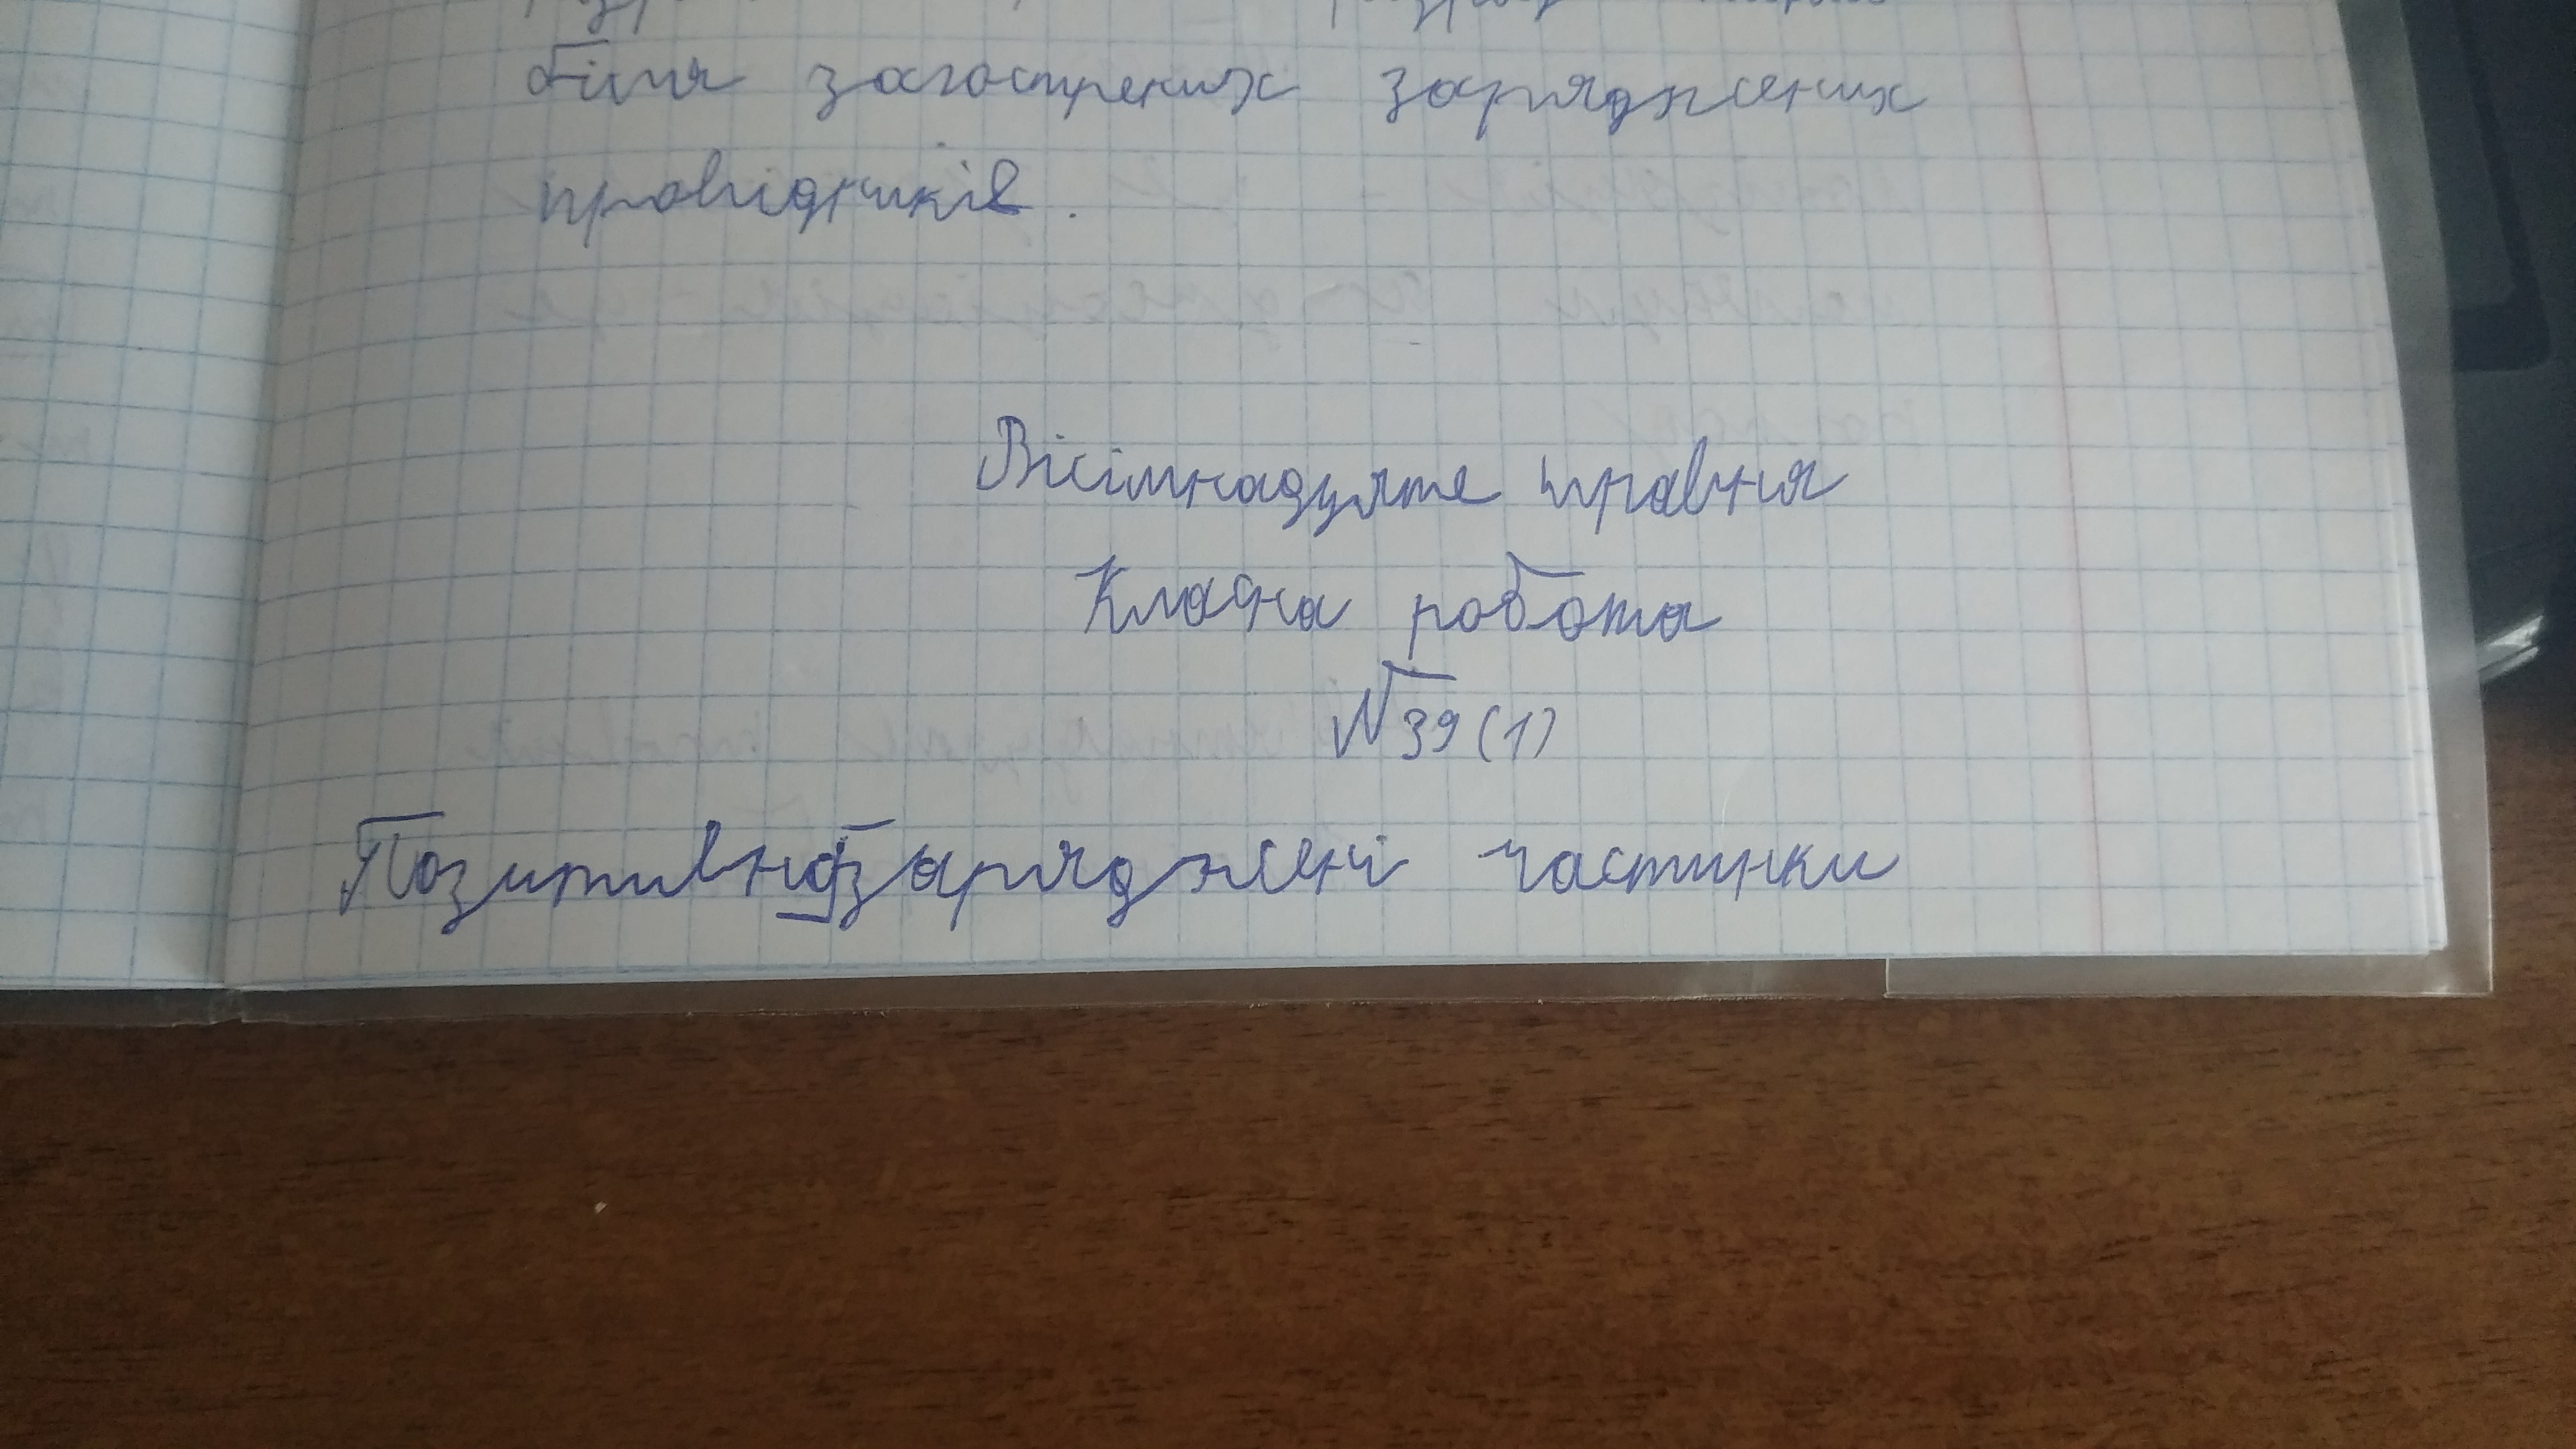 біля загострених заряджених
провідників.
Вісімнадцяте травня
Класна робота
№39(1)
Позитивно заряджені частинки